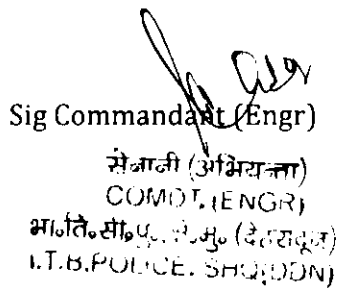 Sig Commandant (Engr)
सेनानी (अभियन्ता)
COMDT. (ENGR)
भा०ति०सी०पु० से०मु० (देहरादून)
I.T.B.POLICE. SHQ(DDN)